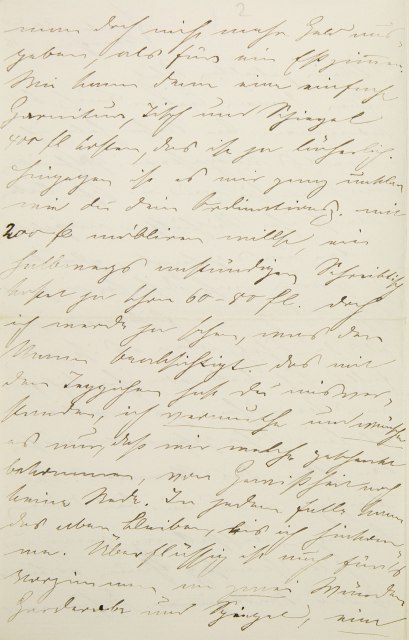 2
man doch nicht mehr Geld aus¬
geben, als für ein Eßzimmer.
Wie kann denn eine einfache
Garnitur, Tisch und Spiegel
400 fl kosten, das ist ja lächerlich.
Hingegen ist es mir ganz unklar
wie du dein Ordinationsz. mit
200 fl möbliren willst, ein
halbwegs anständiger Schreibtisch
kostet ja schon 60-80 fl. doch
ich werde ja sehen, was den
Mama beabsichtigt. das mit
den Teppichen hast du misver¬
standen, ich vermuthe und wünsche
es nur, daß wir welche geschenkt
bekommen, von Gewißheit noch
keine Rede. In jedem Falle kann
das eben bleiben, bis ich hinkom¬
me. Überflüssig ist auch fürs
Vorzimmer an zwei Wänden
Garderobe und Spiegel, eine